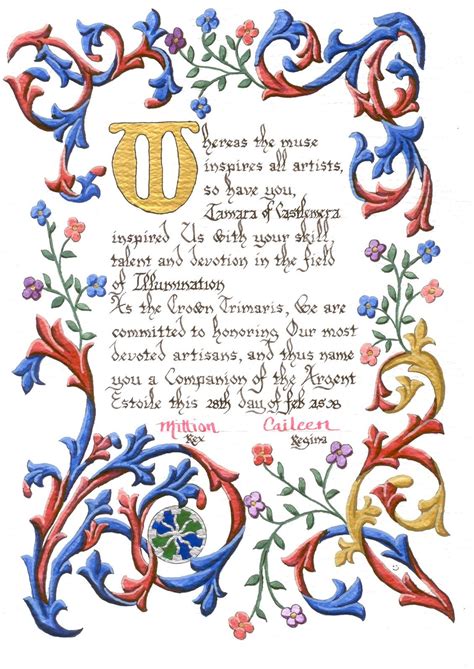 Whereas the muse
inspires all artists,
so have you,
Tamara of Castlemera
inspired Us with your skill,
talent and devotion in the field
of Illumination
As the Crown Trimaris, We are
committed to honoring Our most
devoted artisans, and thus name
you a Companion of the Argent
Estoile this 28th day of feb
Mittion Caileen
Rex Regina